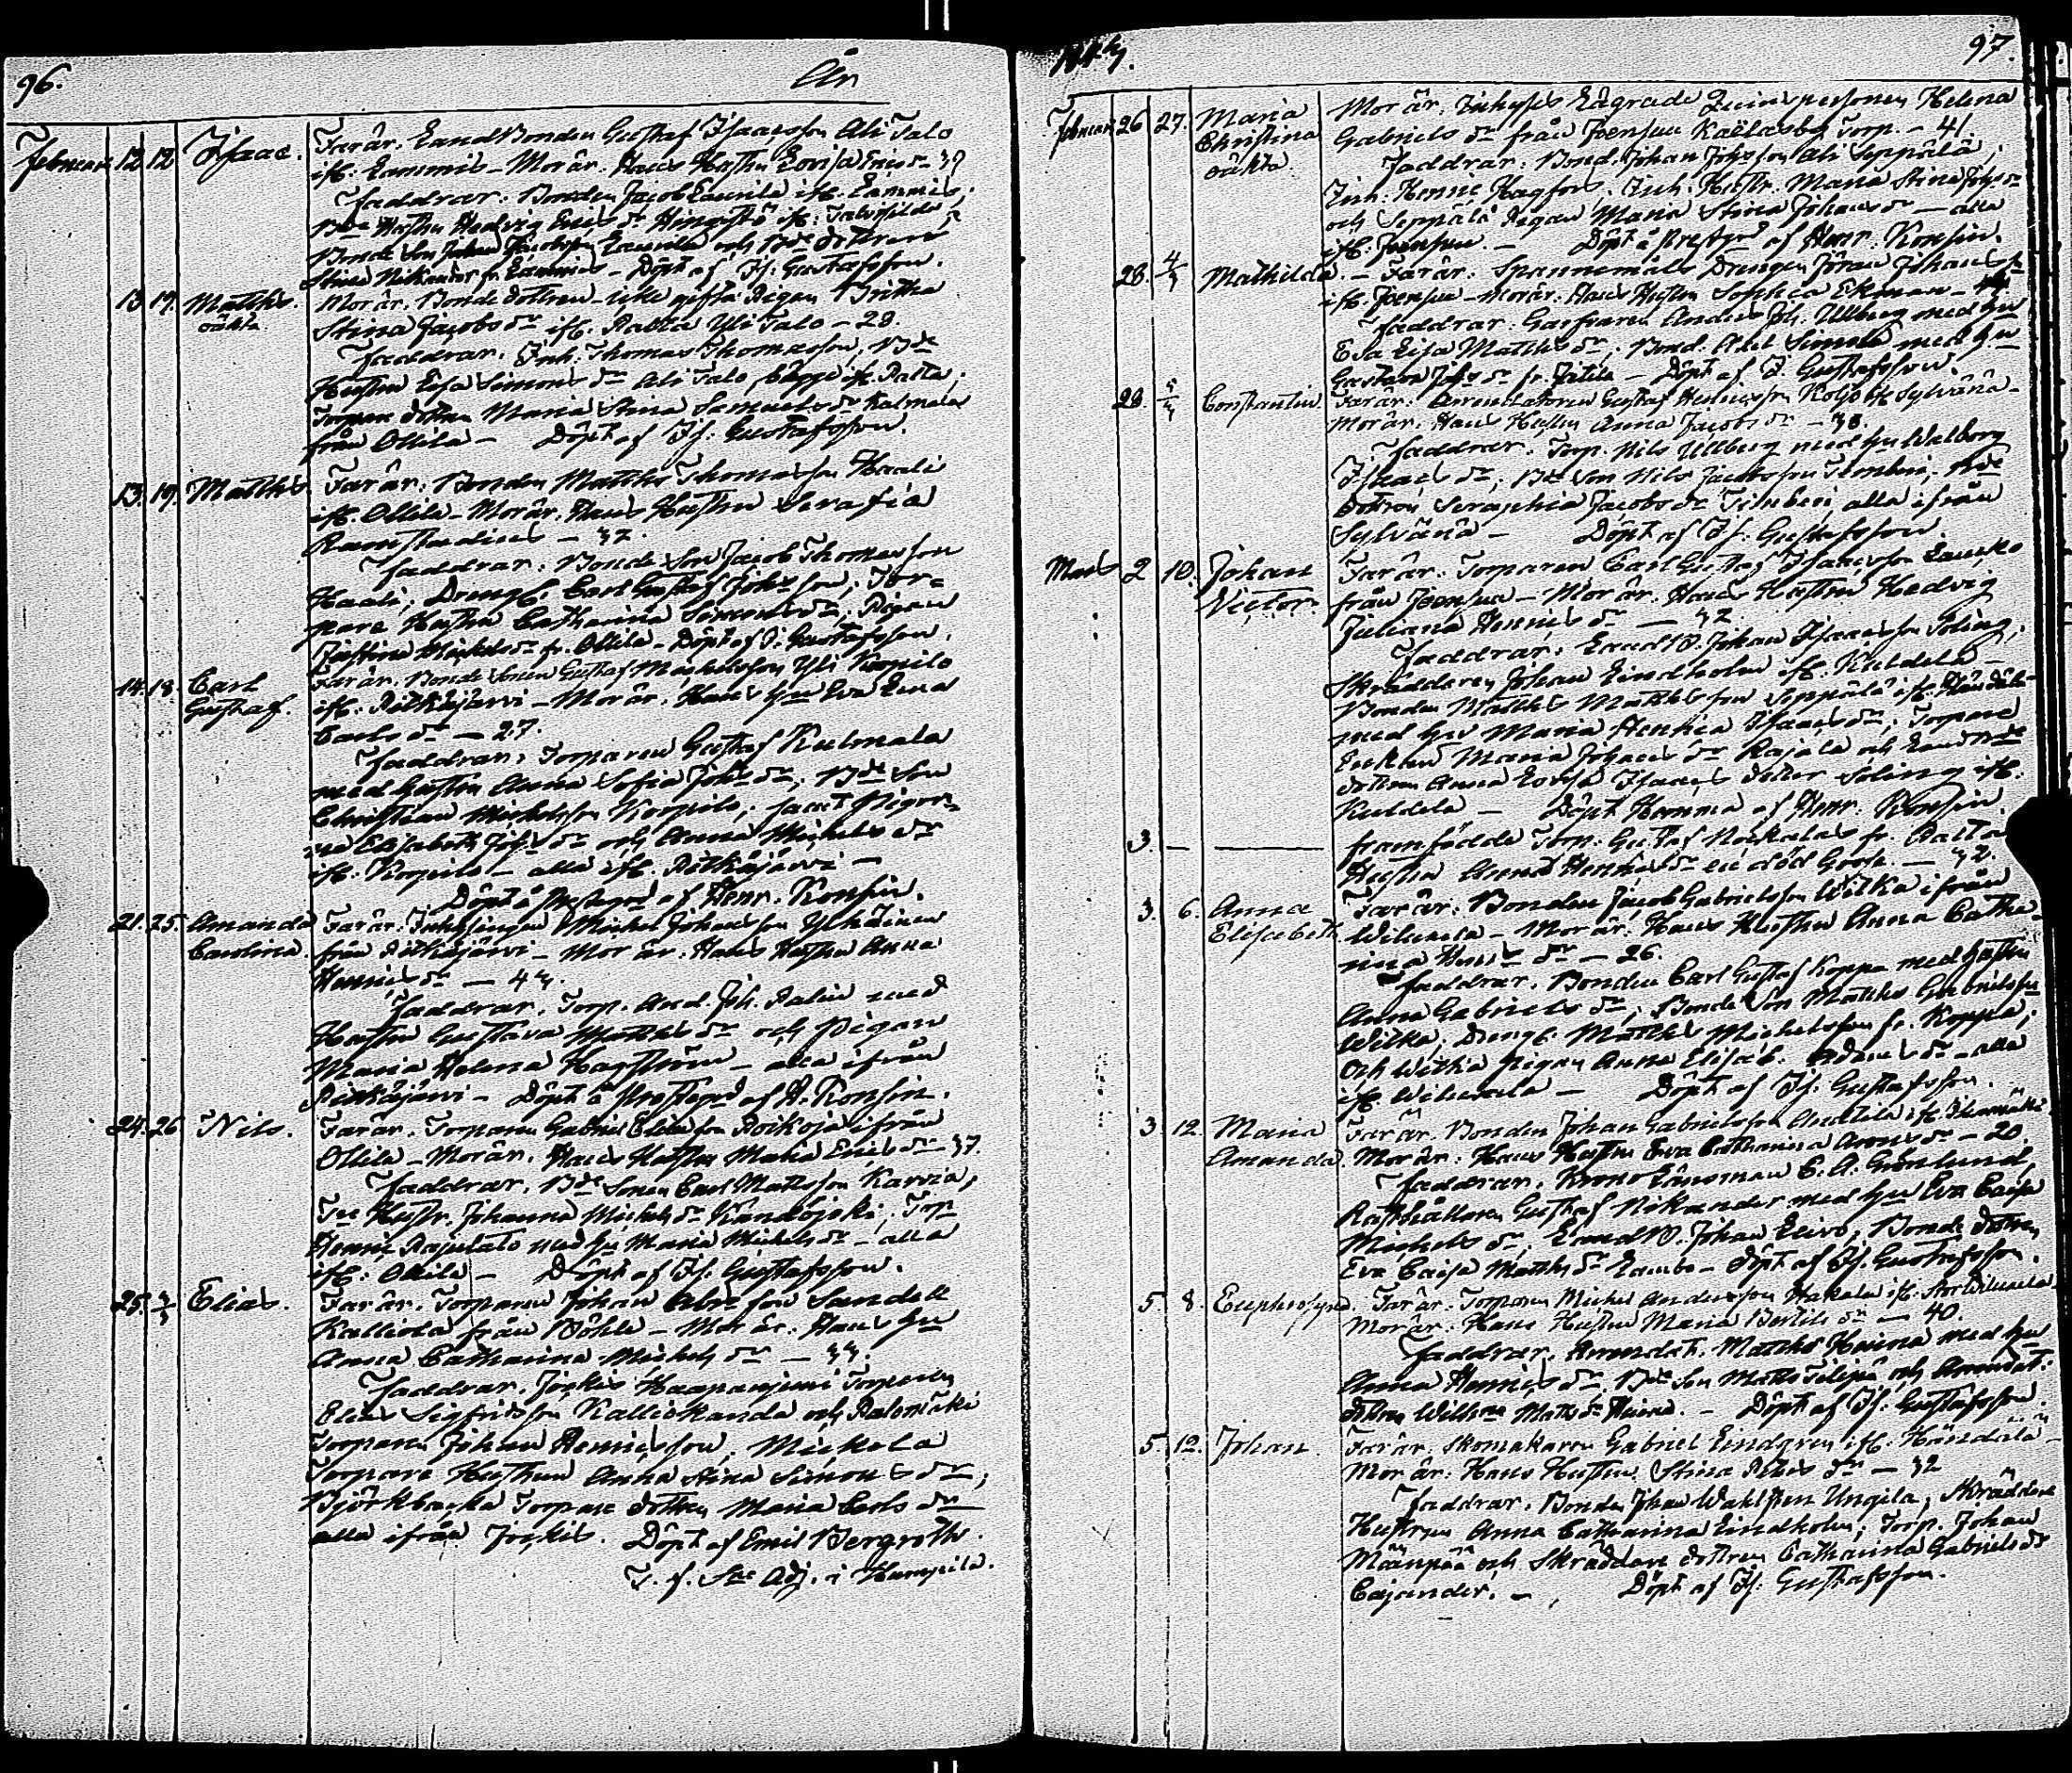 96.
År
Februari 12 12 Isaac. Far är. Land Bonden Gustaf Isaacsson Ali Talo
ifr. Lammis - Mor är. Hans Hustru Lovisa Ericsdr 39
Faddrar: Bonden Jacob Laurila ifr. Lammis,
Bde Hustru Hedvig Ericsdr
Bonde Son Johan Jacobsson Laurila och Bde dottren
Stina Nikander fr. Lammis - Döpt af Is: Gustafsson.
13 19. Matths. Mor är. Bonde dottren icke gifta Pigan Britha
oäkta. Stina Jacobsdr ifr. Palta Yli Talo - 28.
Faddrar. Inh. Thomas Thomasson, Bde
Hustru Eva Simonsdr Ali Talo, bägge ifr. Palta,
Torpare dottren Maria Stina Samuelsdr Kalmala
från Ollila - Döpt af Is: Gustafsson.
13. 19. Matths Far är. Bonden Matths Thomasson Haali
ifr. Ollila - Mor är. Hans Hustru Serafia
- 32.
Faddrar. Bonde Son Jacob Thomasson
Haali, Dreng. Carl Gustaf Johsson, Tor=
pare Hustru Catharina Simonsdr, Pigan
Justina Michelsdr fr. Ollila - Döpt af Is: Gustafsson.
14. 18. Carl Far är. Bonde Sonen Gustaf Michelsson Yli Korpilo
Gustaf. ifr. Pitkäjärvi - Mor är. Hans Hu Eva Lena
Carlsdr - 27.
Faddrar. Torparen Gustaf Kulmala
med Hustru Anna Sofia Johsdr, Bde Son
Christian Michelsson Korpilo, samt Pigor=
na Elisabeth Johsdr och Anna Michelsdr
ifr. Korpilo - alla ifr. Pitkäjärvi -
Döpt å Prestgrd af Henr. Konsin.
21. 25. Amanda Far är. Inhysingen Michel Johansson
Carolina. från Pitkäjärvi - Mor är. Hans Hustru Anna
Henricsdr - 43.
Faddrar. Torp. And. Joh. Palin med
Hustru Gustava Matthsdr och Pigan
Maria Helena Hagström - alla ifrån
Pitkäjärvi - Döpt å Prestegrd af H. Konsin.
24. 26 Nils. Far är. Torparen Gabriel Eliasson Poikoja ifrån
Ollila - Mor är. Hans Hustru Maria Ericsdr - 37.
Faddrar. Bde Sonen Carl Mattsson Karvia,
Hustr. Johanna Michelsdr Kandojoki, Torp
Henric Rajulato med Hu Maria Michelsdr - alla
ifr. Ollila - Döpt af Is: Gustafsson.
25. 3/3 Elias. Far är. Torparen Johan Abrson Sandell
Kalliola från Böhle - Mor är. Hans Hu
Anna Catharina Michelsdr - 33.
Faddrar. Jockis Haapaniemi Torparen
Elias Sigfridsson Kalliokanda och Palomäki
Torparen Johan Henricsson, Mickola
Torpare Hustrun Anna Stina Simonsdr,
Björkbacka Torpare dottren Maria Carlsdr
alla ifrån Jockis. Döpt af Emil Bergroth.
T. f. Sac. Adj. i Humpila.
1843.
97.
Februari 26 27. Maria Mor är. Inhyses Lägrade Qvinspersonen Helena
Christina Gabrielsdr från Joensuu Torp. - 41.
oäkta. Faddrar. Bond. Johan Johsson Ali Seppälä,
Inh. Henric Hagfors, Inh. Hustr. Maria Stina Johsdr
och Seppälä Pigan Maria Stina Johansdr - alla
ifr. Joensuu. - Döpt å Prestgrd af Henr. Konsin.
28. 4/3 Mathilda. - Far är. Spannemåls Drengen Jöran Johansson
ifr. Joensuu - Mor är. Hans Hustru Sophia Ekman -
Faddrar: Garfvaren Anders Joh. Ullberg med Hu
Eva Lisa Matthsdr, Bond. Abel Simola med Hu
Gustava Johsdr fr. - Döpt af Is. Gustafsson.
28. 5/3 Constantin Far är: Arrendatoren Gustaf Henricsson Koljo ifr. Sylvänä -
Mor är. Hans Hustru Anna Jacobsdr - 38.
Faddrar. Torp. Nils Ullberg med Hu Walborg
Isaacsdr, Bde Son Nils Jacobsson Timberi, Bde
dottren Seraphia Jacobsdr Timberi alla ifrån
Sylvänä - Döpt af Is. Gustafsson.
Mars 2 10. Johan Far är. Torparen Carl Gustaf Isaacsson
Victor. från Joensuu - Mor är. Hans Hustru Hedvig
Juliana Henricsdr - 32.
Faddrar: Land B. Johan Isaacsson Soling,
Skräddaren Johan Lindholm ifr. Kuldela -
Bonden Matths Matthsson Seppälä ifr.
med Hu Maria Henrica Isaacsdr, Torpare
Enkan Maria Johansdr Rajala och Land Bde
dottren Anna Lovisa Isaacs dotter Soling ifr.
Kuldela - Döpt Hemma af Henr. Konsin.
3. - framfödde Torp. Gustaf Nokkalas fr. Palta
Hustru Anna Henricsdr ett död Goss. - 32.
3. 6. Anna Far är. Bonden Jacob Gabrielsson Wilka ifrån
Elisabeth. Wiluxela - Mor är. Hans Hustru Anna Catha-
rina Henrsdr - 26.
Faddrar. Bonden Carl Gustaf Koppa med Hustru
Anna Gabrielsdr, Bonde Son Matths Gabrielsson
Wilka. Dreng. Matths Michelsson fr. Koppa,
Och Wilka Pigan Anna Elisab. Adamsdr - alla
ifr. Wiluxela - Döpt af Is. Gustafsson.
3. 12. Maria Far är. Bonden Johan Gabrielsson Anttila ifr.
Amanda. Mor är. Hans Hustru Eva Catharina Aronsdr - 20.
Faddrar. Krono Länsman C. A. Grönlund,
Rusthållaren Gustaf Nikander med Hu Eva Caisa
Michelsdr, Land B. Johan Eero, Bonde dottren
Eva Caisa Matthsdr Lambo - Döpt af Is. Gustafsson.
5. 8. Euphrosyne. Far är. Torparen Michel Andersson Hakala ifr. Stor Wiluxela
Mor är. Hans Hustru Maria Bertilsdr - 40.
Faddrar. Arrendat. Matths Heinä med Hu
Anna Henricsdr, Bde Son Matts Tilipää och Arrendat.
dottren Wilhna Mattsdr Heinä. - Döpt af Is. Gustafsson.
5. 12. Johan. Far är. Skomakaren Gabriel Lindgren ifr. Händälä -
Mor är. Hans Hustru Stina Petersdr - 32
Faddrar. Bonden Johan Wahlsten Ungila, Skräddare
Hustrun Anna Catharina Lindholm, Torp. Johan
Mäenpää och Skräddare dottren Catharina Gabrielsdr
Cajander. - Döpt af Is. Gustafsson.